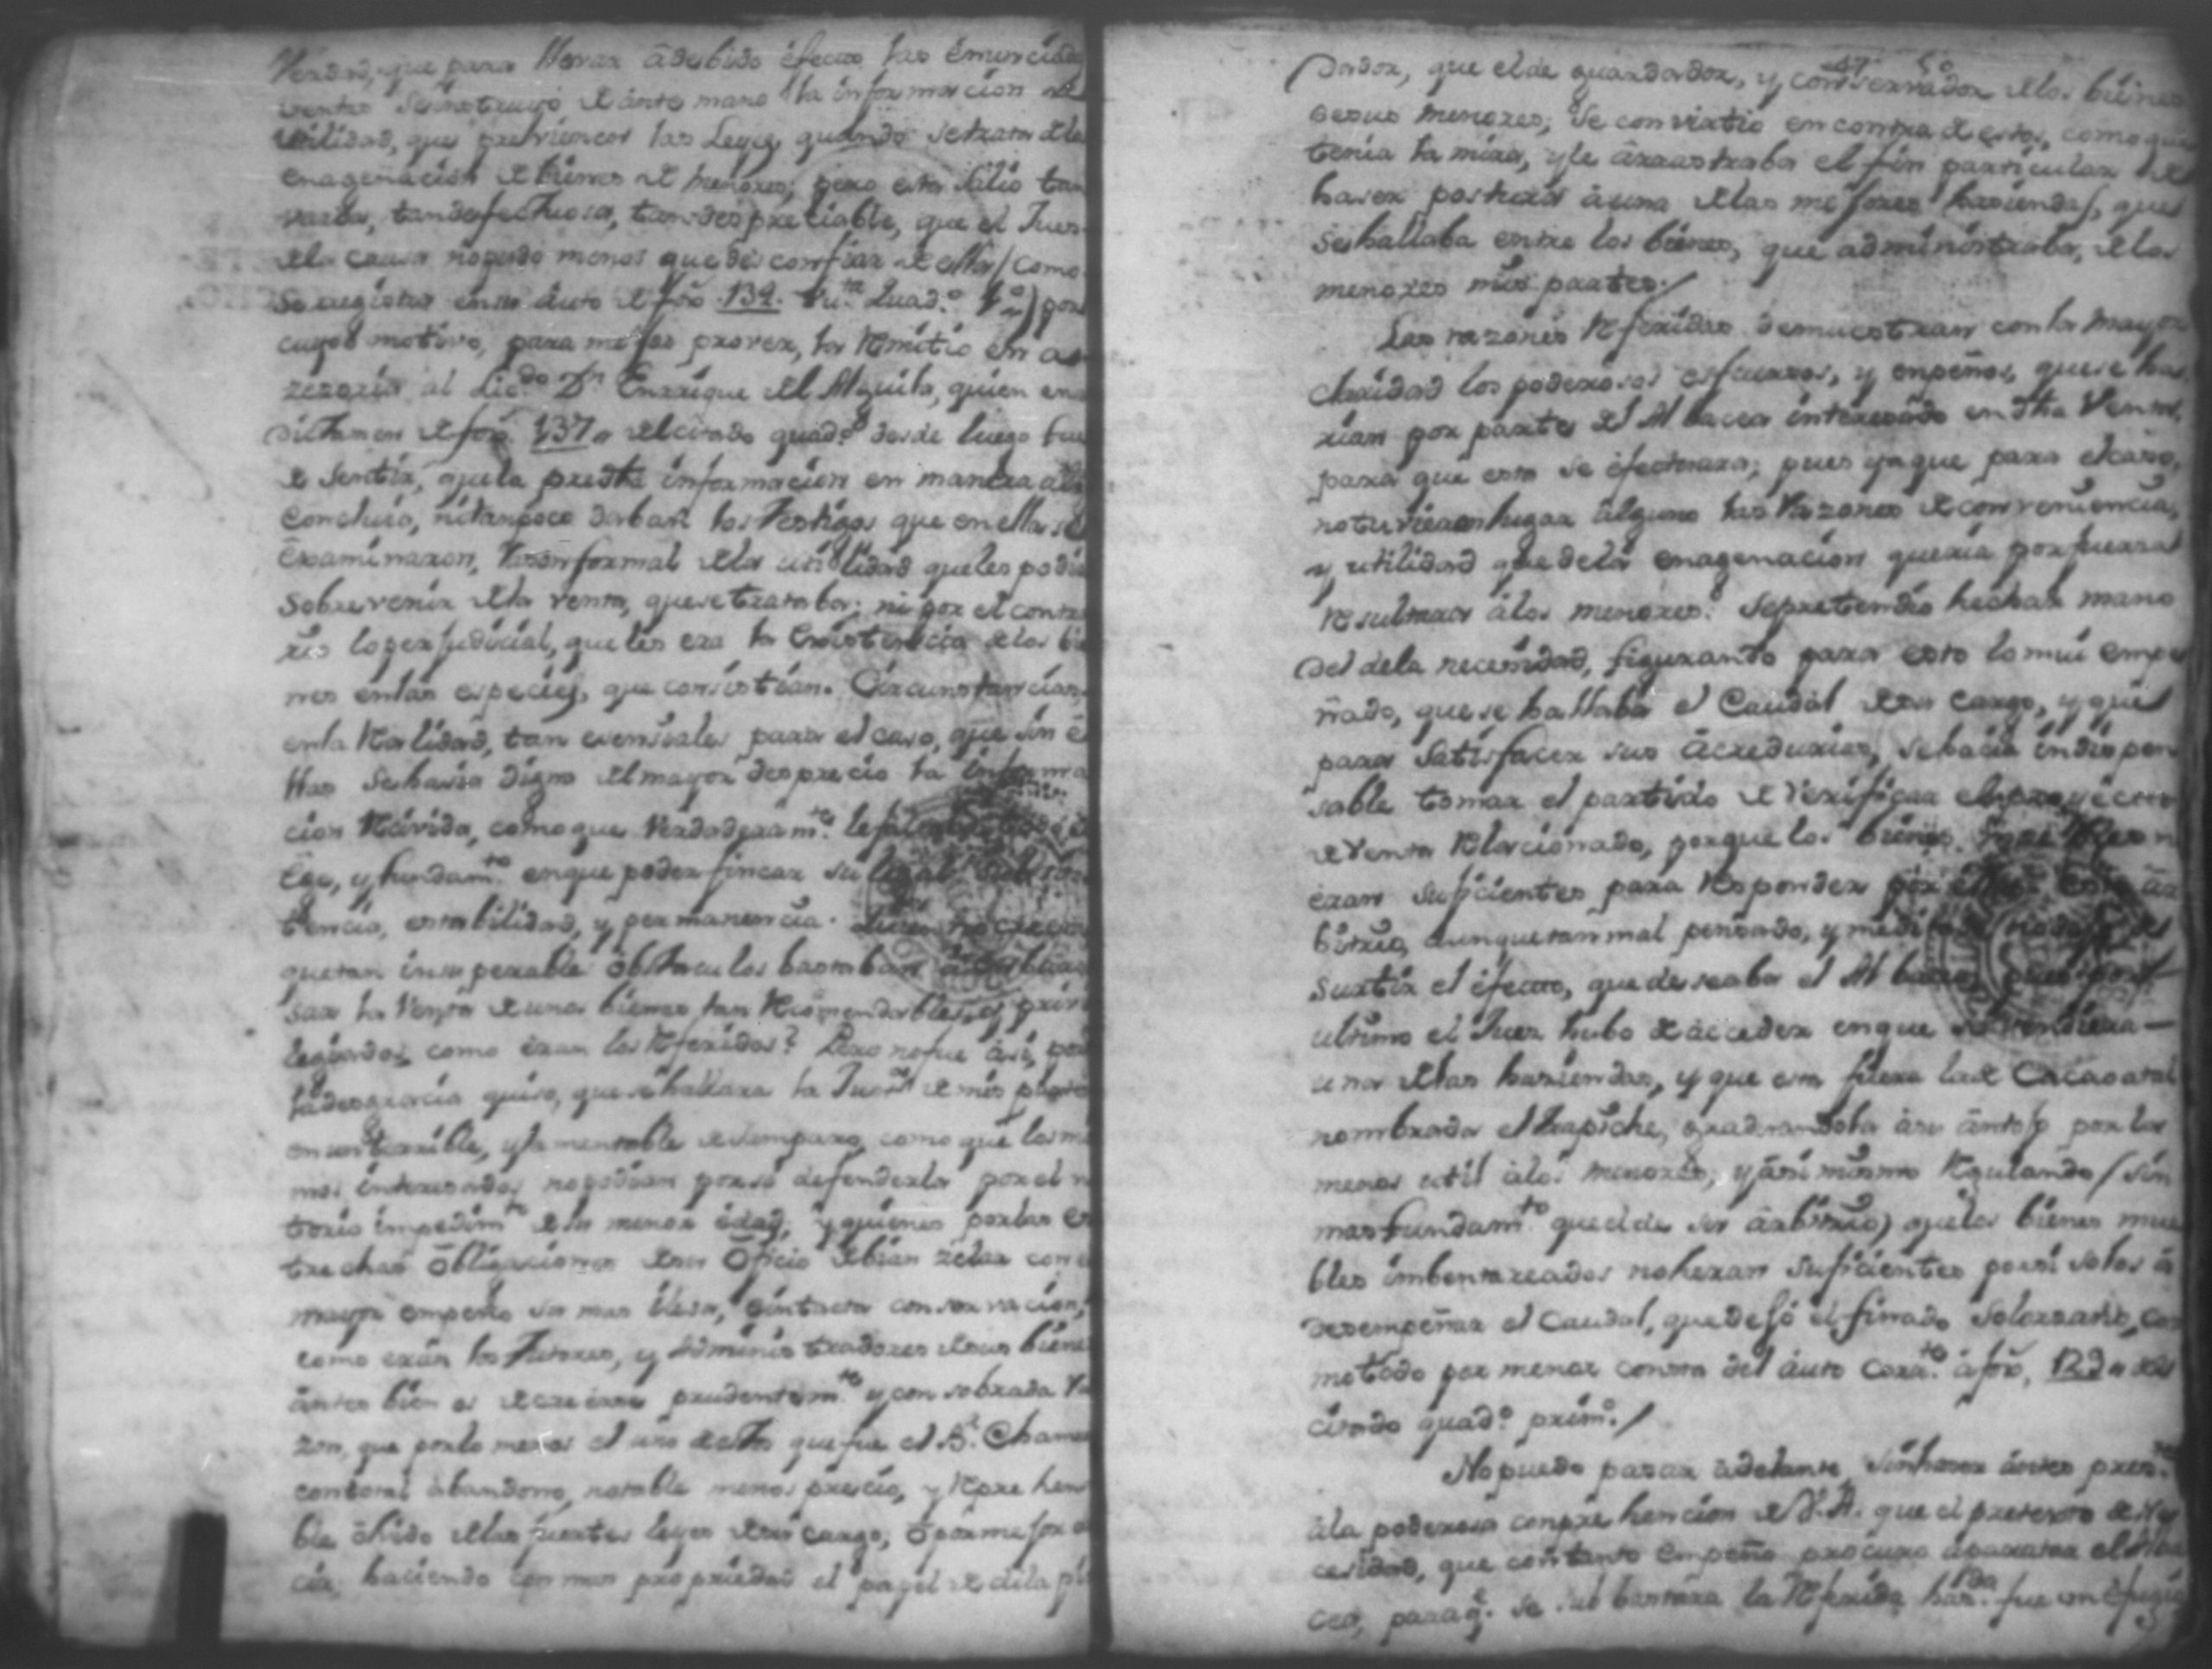 Verdad, que para llevar â debido êfecto las ênunciada
ventas se instruyó de ante mano la informacion de
utilidad, que previenen las Leyes quando se trata de la
enagenación de bienes de menores; pero esta salió tan
vaxia, tan defectuosa, tan despreciable, que el Juez
de la causa no pudo menos que desconfiar de ella (como
se registra en su auto de fox.s 134. vu.ta Quad.o 1.o) por
cuyo motivo, para mejor prover, la Remitió en as
zezoria al Lic.do D.n Enrrique del Aguila, quien en
dictamen de fox.s 137 del citado quad.o desde luego fue
de sentir, que la predha informacion en manera alg
concluio, ni tampoco daban los testigos que en ella se
Exsaminaron, razon formal de la utilidad que les podia
sobrevenir de la venta, que se trataba; ni por el contra
rio lo perjudicial, que les era la Existencia de los bie
nes en las especies, que consistian. Circunstancias,
en la Realidad, tan esenciales para el caso, que sin ê
llas se hacia digna del mayor desprecio la informa
cion Recivida, como que verdaderam.te le faltaba
Exe, y fundam.to en que poder fincar su legal subsis
tencia, estabilidad, y permanencia. Quien no creera
que tan insuperable obstaculos bastaban
sar la venta de unos bienes tan Recomendables, y privi
legiados, como êran los Referidos? Pero no fue âsi, por
la desgracia quiso, que se hallara la Just.a de mis partes
en un terrible, y lamentable desamparo, como que los mis
mos interesados no podian por si defenderla por el no
torio impedim.to de su menor êdad; y quienes por las es
trechas Obligaciones de su Oficio debian zelar con el
mayor empeño su mas ilesa, è intacta conservacion,
como eran los Tutores, y Administradores de sus biene
ântes bien es de creerse prudentem.te y con sobrada Ra
zon, que por lo menos el uno de ellos que fue el B.r Chamo
con total âbandono, notable menos precio, y Reprehen
ble ôlvido de las fuertes leyes de su cargo, ô por mejor de
cir, haciendo con mas propriedad el papel de dilapi
dador, que el de guardador, y conservador de los bienes
de sus menores, se convirtio en contra de estos, como que
tenia la mira, y le ârrastraba el fin particular de
haser postura â una de las mejores haziendas, que
se hallaba entre los bienes, que administraba, de los
menores mis partes./
Las razones Referidas demuestran con la mayor
claridad los poderosos esfuerzos, y enpeños, que se ha
rian por parte del Albacea interesado en dha Venta,
para que esta se êfectuara; pues ya que para el caso,
no tuvieron lugar alguno las Razones de conveniencia,
y utilidad que de la enagenacion queria por fuerza
Resultara â los menores. Se pretendió hechar mano
del de la necesidad, figurando para esto lo mui empe
ñado, que se hallaba el Caudal de su cargo, y que
para satisfacer sus Âcredurias, se hacia indispen
sable tomar el partido de verificar el proyecto
de venta Relacionado, porque los bienes
êran suficientes para Responder por
bitrio, aunque tan mal pensado, y meditado
surtir el êfecto, que deseaba el Albacea, pues por
ultimo el Juez hubo de acceder en que se vendiera—
una de las haziendas, y que esta fuera la de Cacaoatal
nombrada el Trapiche, graduandola â su ântojo por la
menos util â los menores, y âsi mismo Regulando (sin
mas fundam.to que el de su ârbitrio) que los bienes mue
bles imbentareados no heran suficientes por si solos â
desempeñar el Caudal, que dejó el finado Solorzano, co
mo todo por menor consta del âuto Cora.te â fox.s 129 del
citado quad.o prim.o/
No puedo pasar âdelante sin haser ântes
â la poderosa conprehencion de V.A. que el pretexto de Ne
cesidad, que con tanto empeño procuró aparatar el Alba
cea, para q.e se subhastara la Referida haz.da fue un êfugio